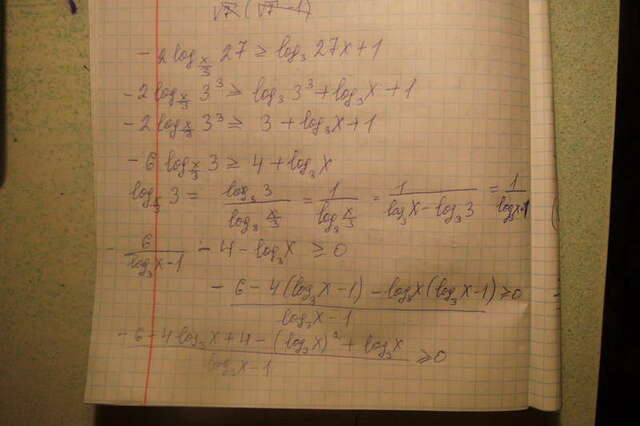 √7 (√7 - 1)
- 2 log_{x/3} 27 ≥ log₃ 27x + 1
- 2 log_{x/3} 3³ ≥ log₃ 3³ + log₃ x + 1
- 2 log_{x/3} 3³ ≥ 3 + log₃ x + 1
- 6 log_{x/3} 3 ≥ 4 + log₃ x
log_{x/3} 3 = log₃ 3 / log₃ x/3 = 1 / log₃ x/3 = 1 / (log₃ x - log₃ 3) = 1 / (log₃ x - 1)
- 6 / (log₃ x - 1) - 4 - log₃ x ≥ 0
(- 6 - 4(log₃ x - 1) - log₃ x (log₃ x - 1)) / (log₃ x - 1) ≥ 0
(- 6 - 4 log₃ x + 4 - (log₃ x)² + log₃ x) / (log₃ x - 1) ≥ 0